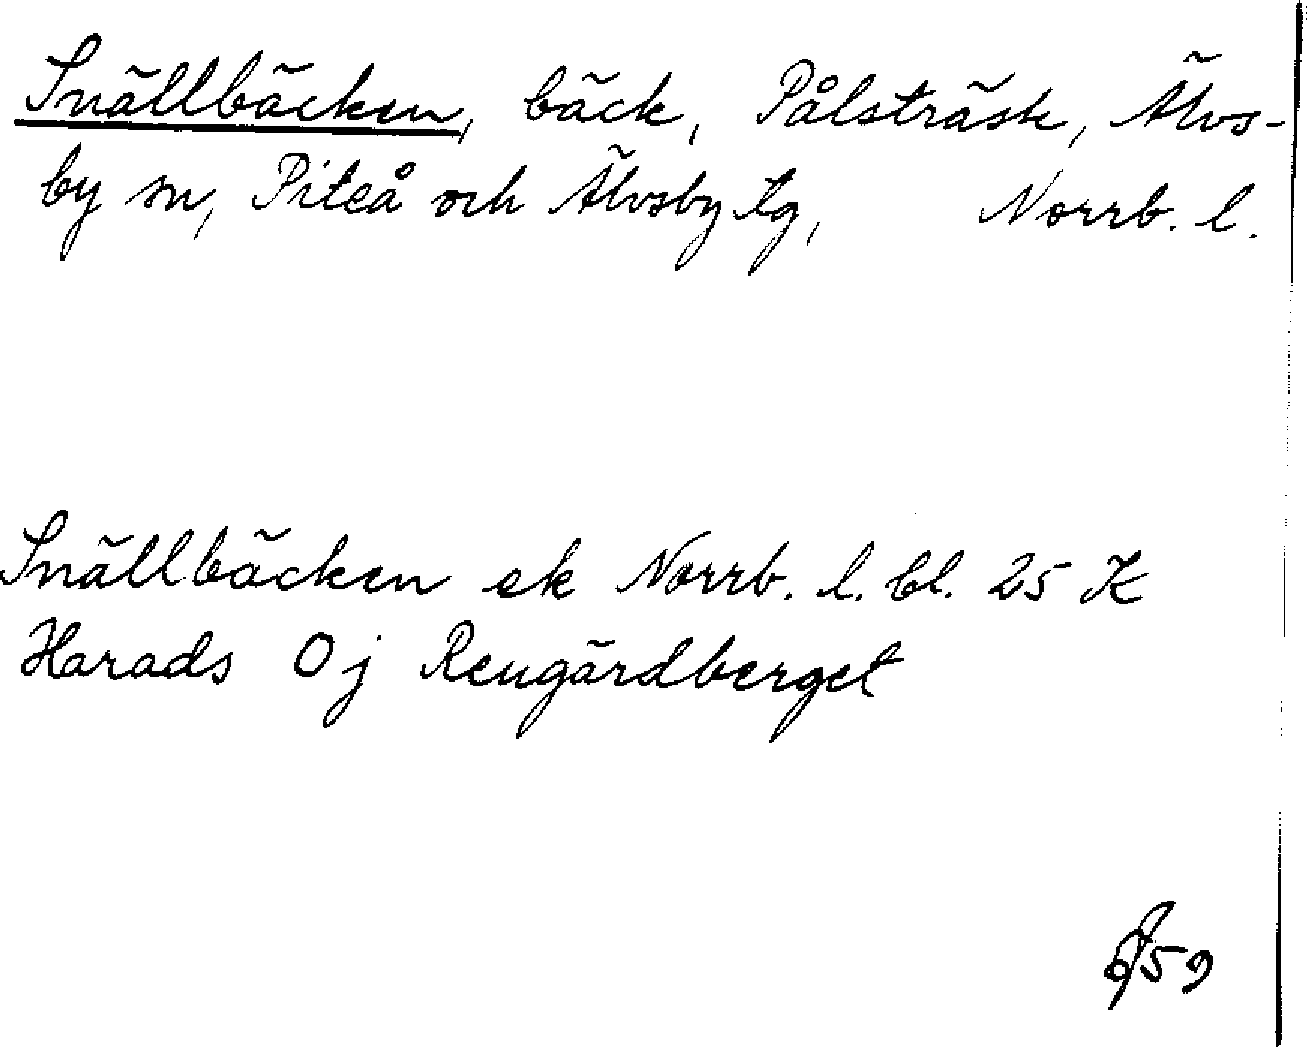 Snällbäcken, bäck, Pålsträsk, Älvs-
by sn, Piteå och Älvsby tg, Norrb. l.
Snällbäcken ek Norrb. l. bl. 25 K
Harads 0 j Rengärdberget